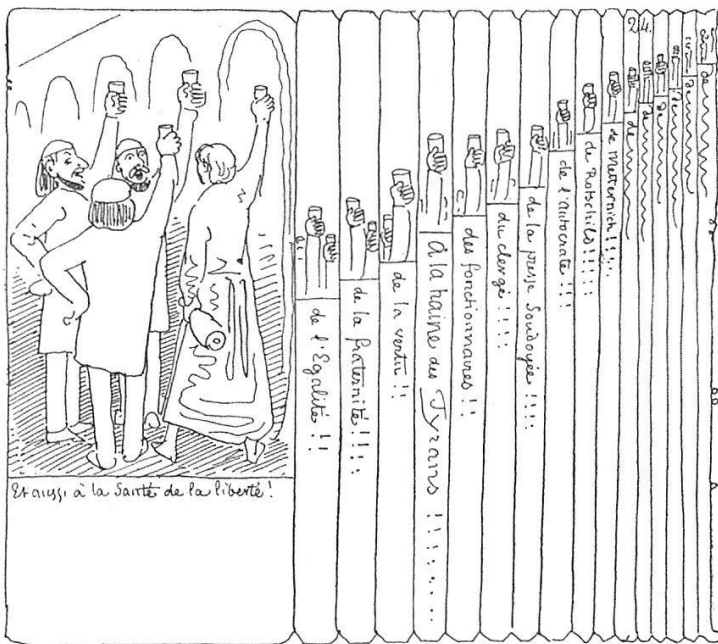 24.
Et aussi à la Santé de la liberté!
de l'Egalité!!
de la fraternité!!!.
de la vertu!!
à la haine des Tyrans!!!....
des fonctionnaires!!
du clergé!!!!
de la presse Soudoyée!!!!
de l'autocrate!!!
de Rotschild!!!!!
de Metternich!!!..
de
de
de
de
de
de